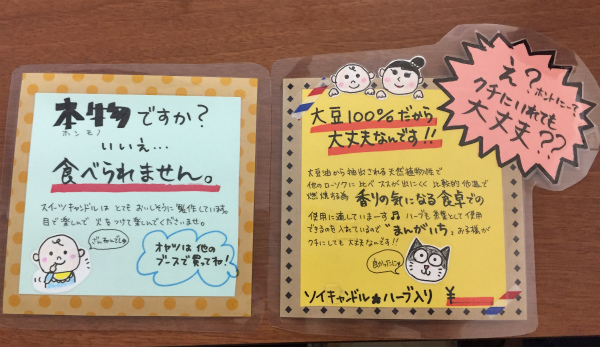 本物ですか?
ホンモノ
いいえ…
食べられません。
スイーツキャンドルは とても おいしそうに 製作しています。
目で楽しんで 火をつけて楽しんでくださいませ。
ごめんねんしゅ
オヤツは他の
ブースで買ってね!
え?ホントにって
クチにいれても
大丈夫??
大豆100%だから
大丈夫なんです!!
大豆油から抽出される天然植物性で
他のローソクに比べ ススが出にくく 比較的低温で
燃焼する為 香りの気になる食卓での
使用に適していまーす♫ ハーブも食葉として使用
できるのを入れているので “まんがいち” お子様が
クチにしても大丈夫なんです!!
良かったにゃ
ソイキャンドル ハーブ入り ¥